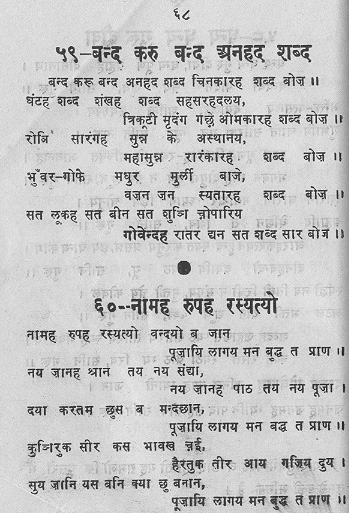 ६८
५९-बन्द करु बन्द अनहद शब्द
बन्द करू बन्द अनहद शब्द चिनकारह शब्द बोज़ ॥
घंटह शब्द शंखह शब्द सहसरहदलय,
त्रिकटी मृदंग गछ़े ओमकारह शब्द बोज़ ॥
रोनि सारंगह सुन्न के अस्थानय,
महासुन्न रारंकारह शब्द बोज़ ॥
भुँवर-गोफे मधुर मुर्ली बाजे,
वज़न जन स्यतारह शब्द बोज़ ॥
सत लूकह सत बीन सत शुञि च़ोपारिय
गोवेन्दह रातस द्यन सत शब्द सार बोज़ ॥
६०--नामह रुपह रस्यत्यो
नामह रुपह रस्यत्यो बन्दयो ब जान
पूजायि लागय मन बुद्ध त प्राण ॥
नय ज़ानह ध्यान तय नय संद्या,
नय ज़ानह पाठ तय नय पूजा ।
दया करतम छुस ब मन्दछान,
पूजायि लागय मन बुद्ध त प्राण ॥
कुञिरुक सीर कस भावख च़ई,
हैरतुक तीर आय गज़िय दुय ।
सुय ज़ानि यस बनि क्या छु बनान,
पूजायि लागय मन बुद्ध त प्राण ॥